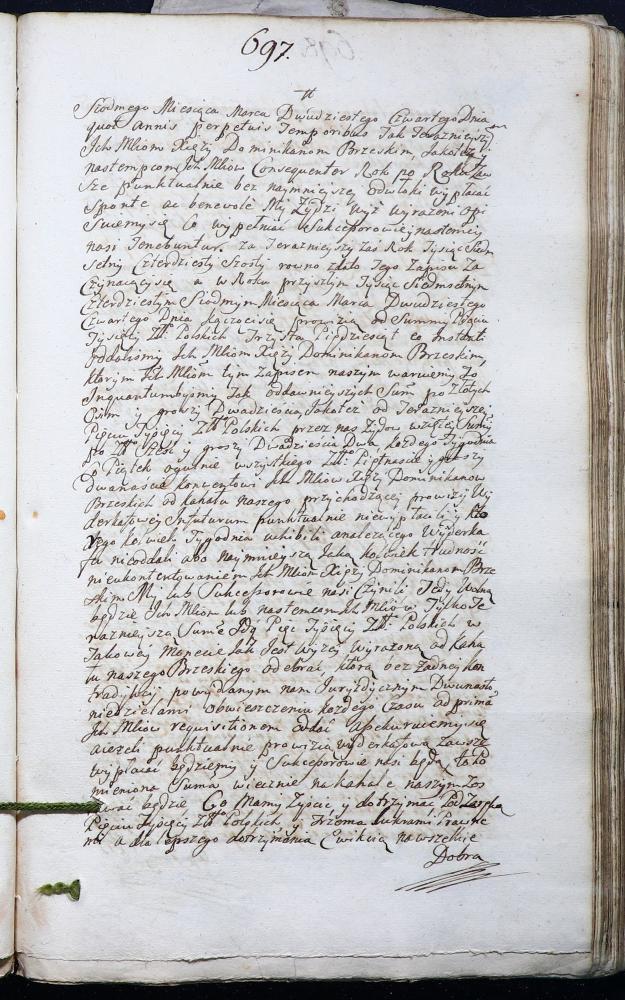 697.
Siodmego Miesiąca Marca Dwudziestego Czwartego Dnia
quot annis perpetuis temporibus tak teraznieyszym
Ich Mliom Xięży Dominikanom Brzeskim, Jako też y
nastempcom Ich Mliow Consequenter Rok po Roku
sze punktualnie bez naymnieyszey odwłoki wypłacać
sponte ac benevole My Żydzi wyż wyrażeni Opi
sujemy się Co wypełniać y Sukcessorowie y nastempcy
nasi tenebuntur. za teraznieyszy zas Rok Tysiąc Siedm
setny Czterdziesty Szosty rowno z datą tego Zapisu Za
czynający się a w Roku przyszłym Tysiąc Siedmsetnym
Czterdziestym Siodmym Miesiąca Marca Dwudziestego
Czwartego Dnia kączocy się prowizią od Summy Pięciu
Tysięcy Złł Polskich Trzysta Pięcdziesiąt ex instanti
oddalismy Ich Mliom Xięży Dominikanom Brzeskim,
ktorym Ich Mliom tym zapisem naszym warujemy
Inquantumbysmy tak od dawnieyszych Summ po Złotych
Osm y groszy Dwadziescia, Jako też od teraznieyszey
Pięciu Tysięcy Złł Polskich przez nas Żydow wziętey Summy
po Złł Szesc y groszy Dwadziescia Dwa kozdego Tygodnia
w Piątek ogulnie wszystkiego Złł Piętnascie y groszy
Dwanascie konwentowi Ich Mliow Xięży Dominikanow
Brzeskich od kahału naszego przychodzącey prowizyi Wy
derkafowey Infuturum punktualnie niewypłacili y kto
rego kolwiek Tygodnia uchibili należącego Wyderka
fu nieoddali abo naymnieyszą Jaką kolwiek trudnosc
nieukontentowaniem Ich Mliow Xięży Dominikanom Brze
skim My lub Sukcessorowie nasi Czynili Tedy Wolno
będzie Ich Mliom lub nastempcom Ich Mliow Tylko te
raznieyszą Summę Pięc Tysięcy Złł Polskich w
takowey Monecie Jak Jest wyżey wyrażona od kaha
łu naszego Brzeskiego odebrac ktorą bez żadney kon
tradykcyi po wydanym nam Jurydycznym Dwunasto
niedzielami obwieszczeniu kozdego Czasu ad prima
Ich Mliow requisitionem oddac Assekurujemy się
a jeżeli punktualnie prowizią wyderkafową zawsze
wypłacac będziemy y Sukcessorowie nasi będą ta po
mieniona Suma wiecznie na kahale naszym zos
tawac będzie Co Mamy Zyscic y dotrzymac Pod Zaręką
Pięciu Tysięcy Złł Polskich y Trzema winami Prawne
mi a dla lepszego dotrzymania Ewikcią na wszelkie
Dobra